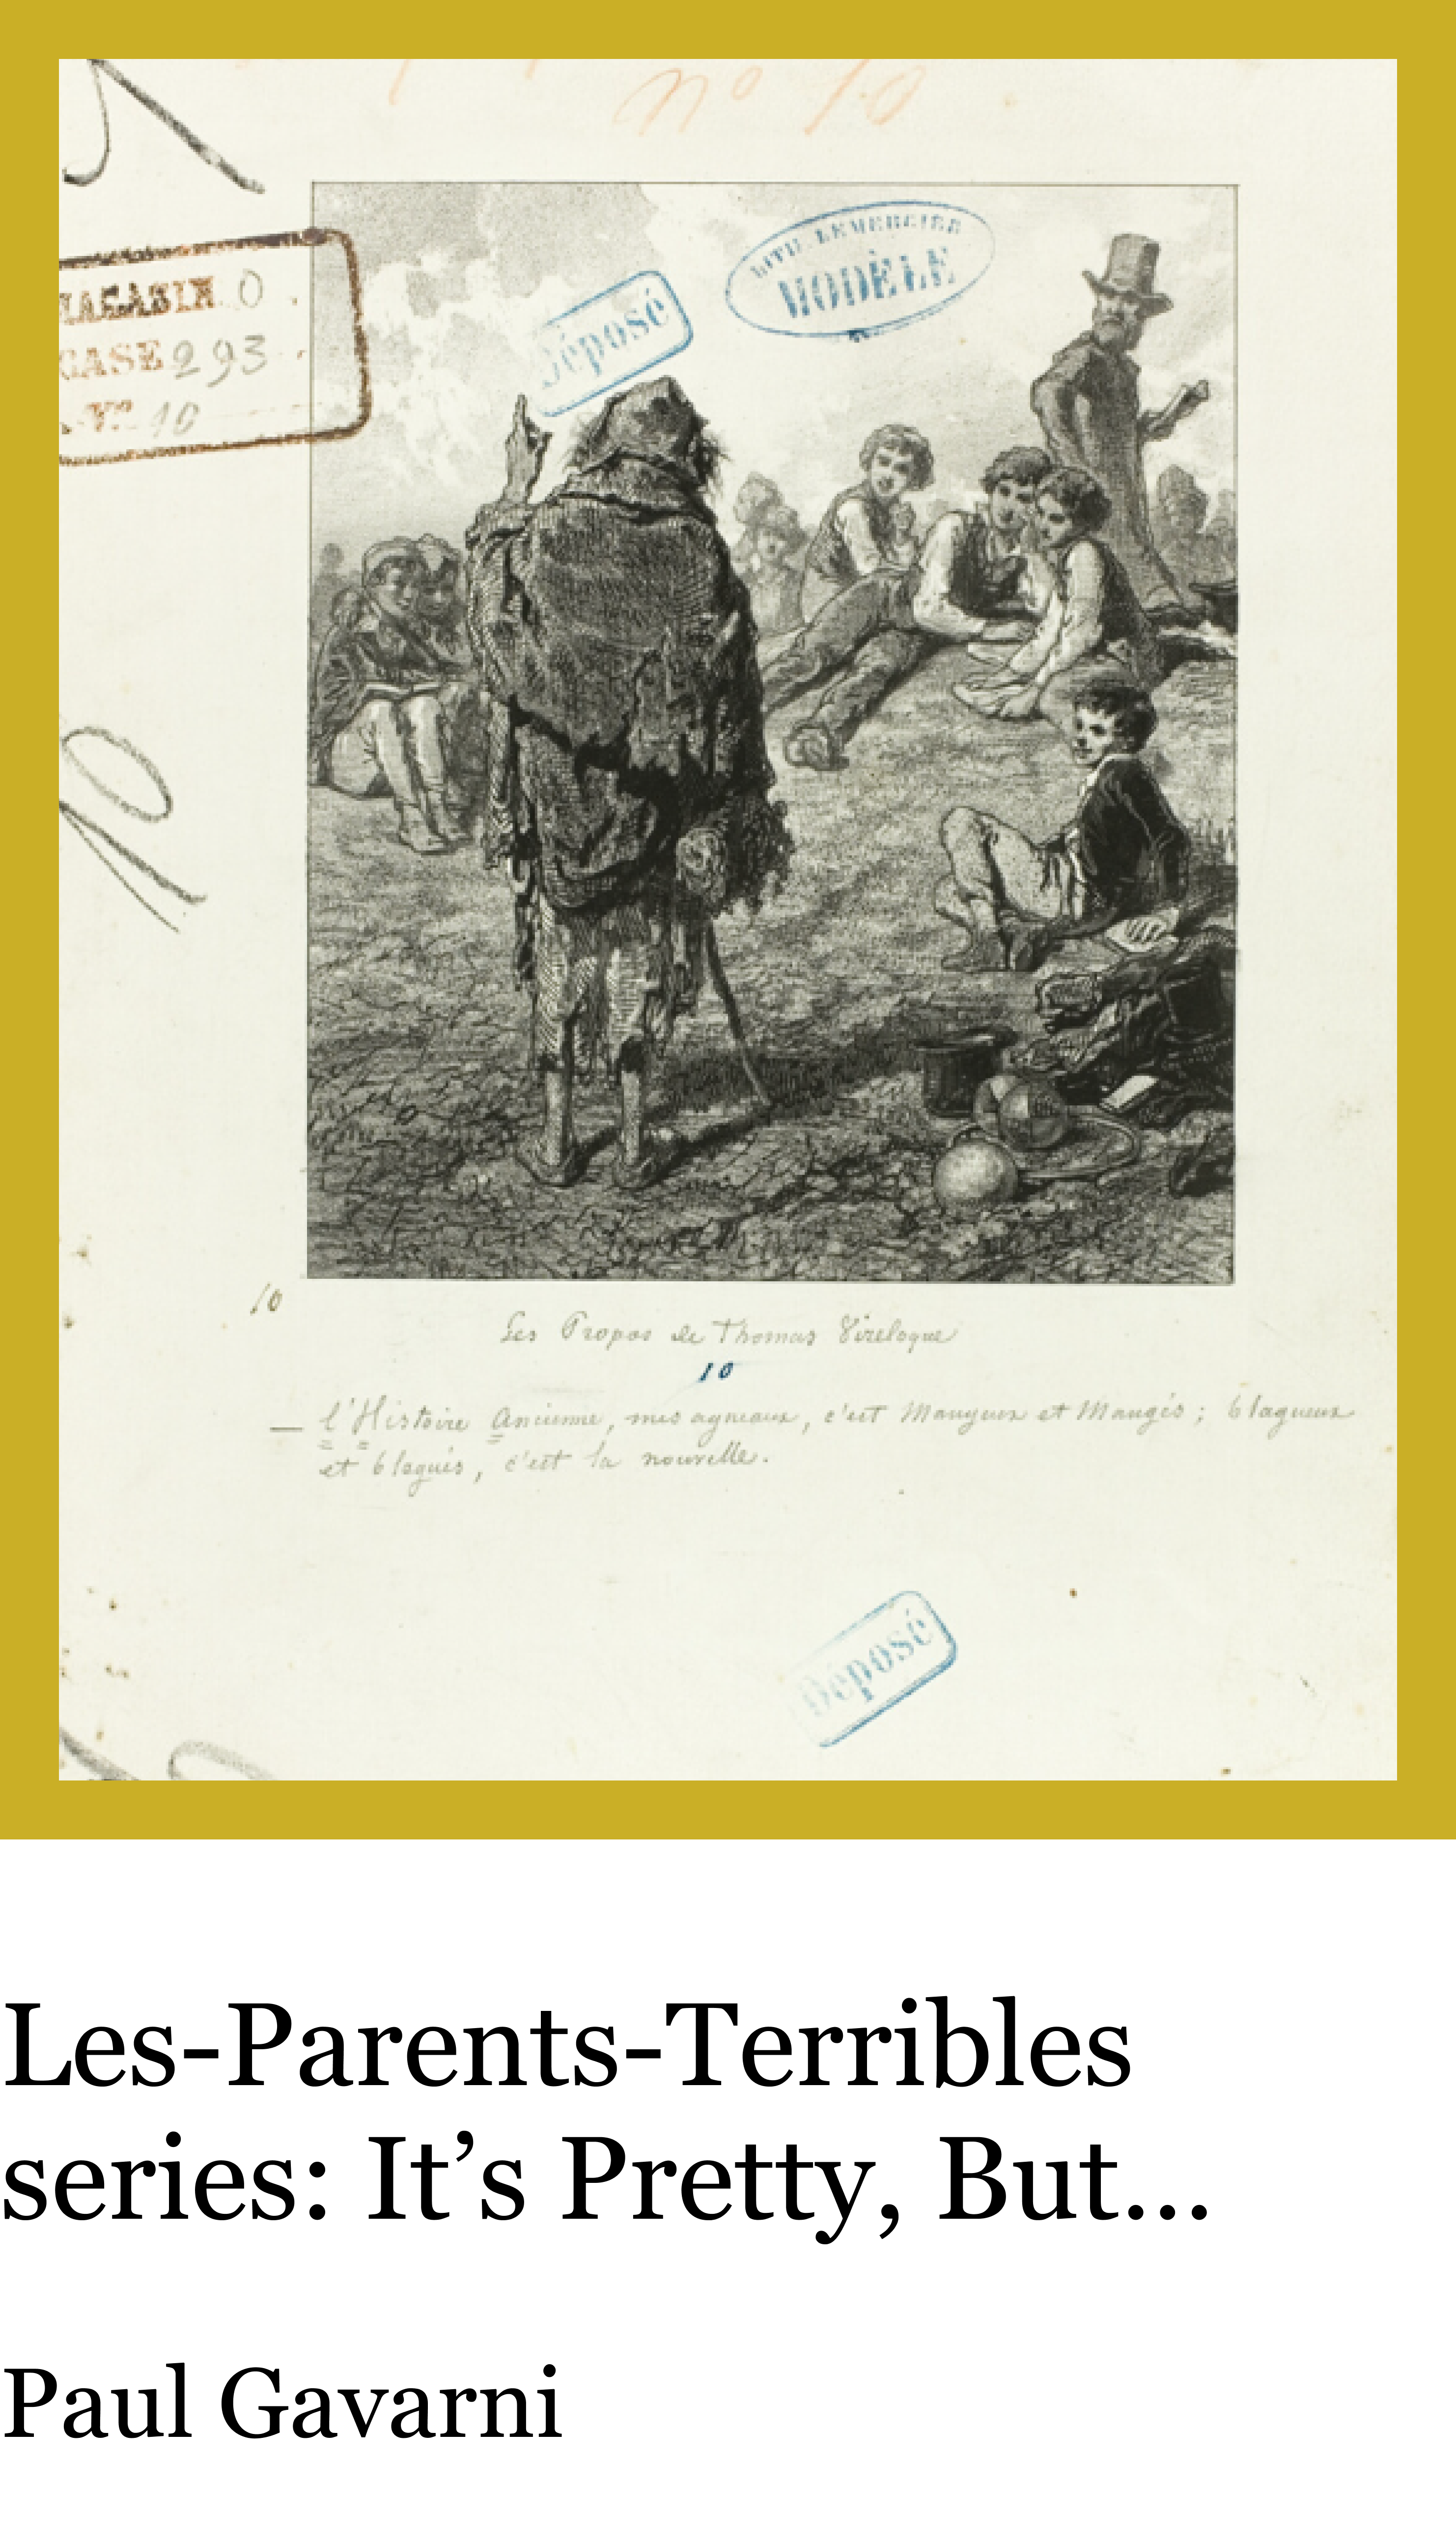 no 10
LITH. LEMERCIER
MODÈLE
Déposé
MAGASIN 0
CASE 293
10
10
10
Les Propos de Thomas Vireloque
10
— l'Histoire Ancienne, mes agneaux, c'est Mangeux et Mangés; blagueux
et blagués, c'est la nouvelle.
Déposé
Les-Parents-Terribles
series: It’s Pretty, But...
Paul Gavarni